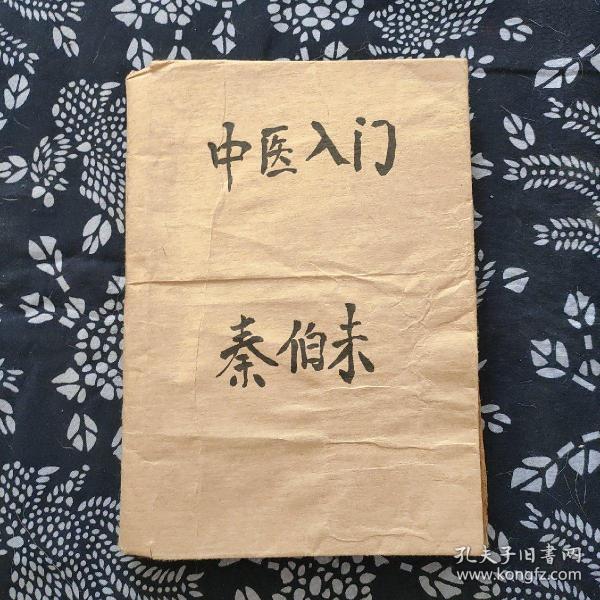 中医入门
秦伯未
孔夫子旧書网
www.kongfz.com